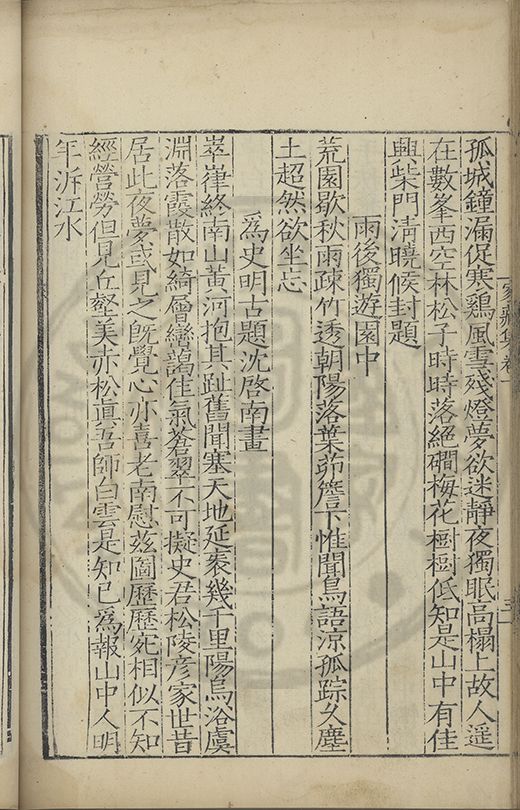 孤城鐘漏促寒鷄風雪殘燈夢欲迷靜夜獨眠高榻上故人遥
在數峯西空林松子時時落絕磵梅花樹樹低知是山中有佳
興柴門清曉候封題
雨後獨遊園中
荒園歇秋雨疎竹透朝陽落葉茆簷下惟聞鳥語涼孤踪久塵
土超然欲坐忘
爲史明古題沈啓南畫
崒嵂終南山黄河抱其趾舊聞塞天地延袤幾千里陽烏浴虞
淵落霞散如綺層巒藹佳氣蒼翠不可擬史君松陵彦家世昔
居此夜夢或見之旣覺心亦喜老南慰兹圖歷歷宛相似不知
經營勞但見丘壑美赤松眞吾師白雲是知已爲報山中人明
年泝江水
家藏集卷一